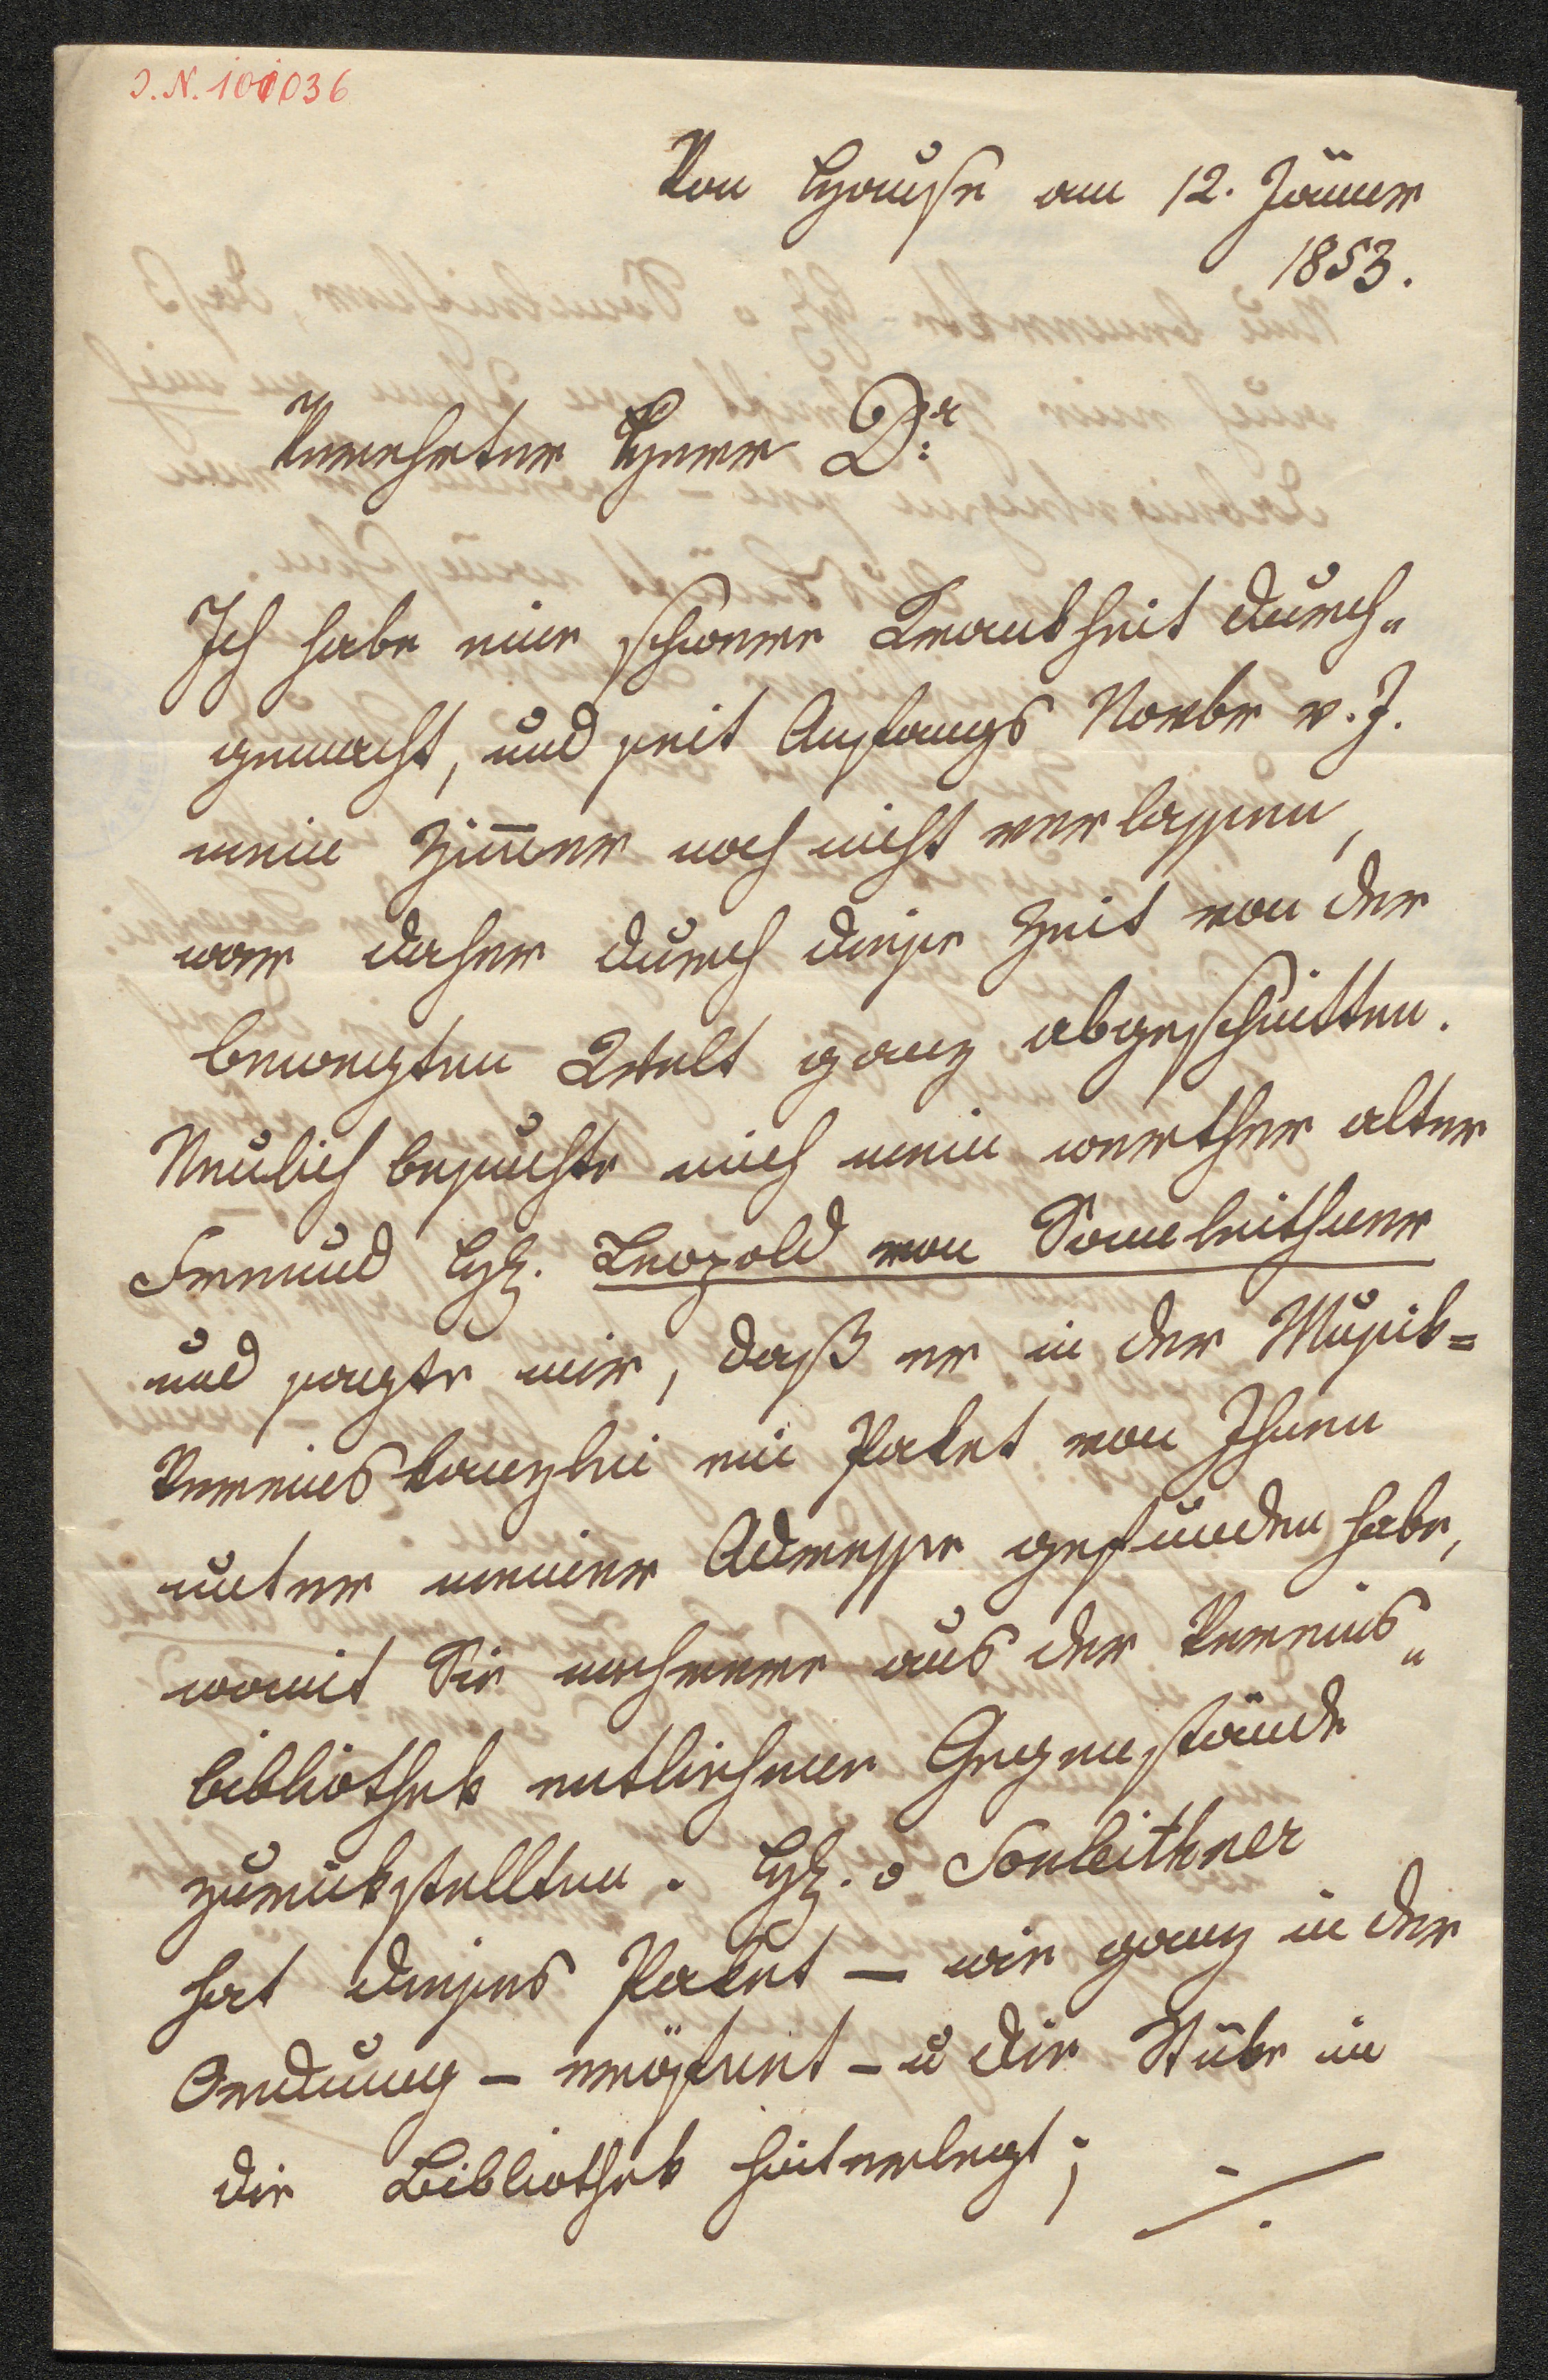 I. N. 101036
Von Hause am 12. Jänner
1853.
Verehrter Herr Dr.
Ich habe eine schwere Krankheit durch„
gemacht, und seit Anfangs Novbr v. J.
mein Zim̅er noch nicht verlassen,
war daher durch diese Zeit von der
bewegten Welt ganz abgeschnitten.
Neulich besuchte mich mein werther alter
Freund H. Leopold von Sonnleithner
und sagte mir, daß er in der Musik=
Vereinskanzlei ein Paket von Ihnen
unter meiner Adresse gefunden habe,
womit Sie mehrere aus der Vereins„
bibliothek entliehene Gegenstände
zurükstellten. H. v Sonleithner
hat dieses Paket — wie ganz in der
Ordnung – eröfnet – u die Stüke in
die Bibliothek hinterlegt;
./.